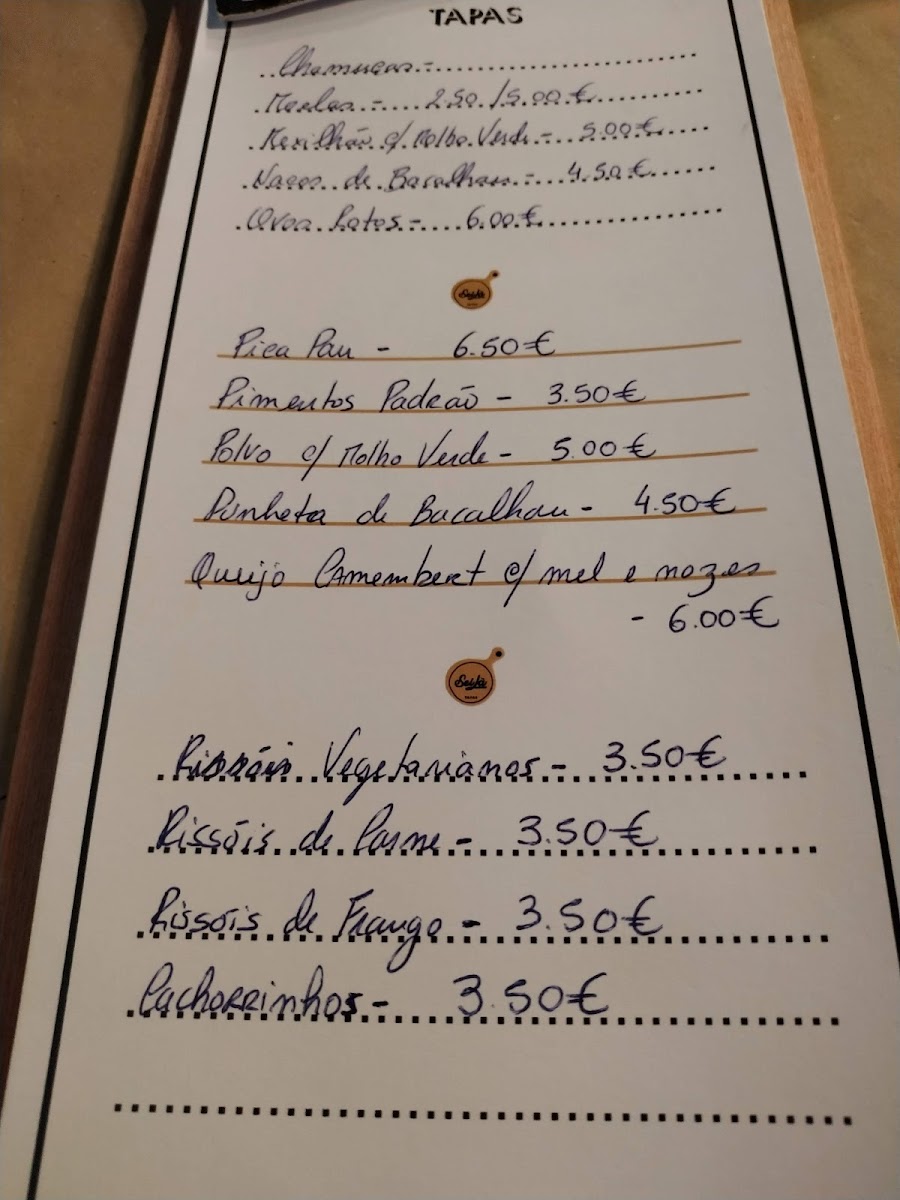 TAPAS
Chamuças -
Moelas - 2.50 / 5.00 €
Mexilhão c/ Molho Verde - 5.00 €
Nacos de Bacalhau - 4.50 €
Ovos Rotos - 6.00 €
Pica Pau - 6.50 €
Pimentos Padrão - 3.50 €
Polvo c/ Molho Verde - 5.00 €
Punheta de Bacalhau - 4.50 €
Queijo Camembert c/ mel e nozes
- 6.00 €
Rissóis Vegetarianos - 3.50 €
Rissóis de Carne - 3.50 €
Rissóis de Frango - 3.50 €
Cachorrinhos - 3.50 €